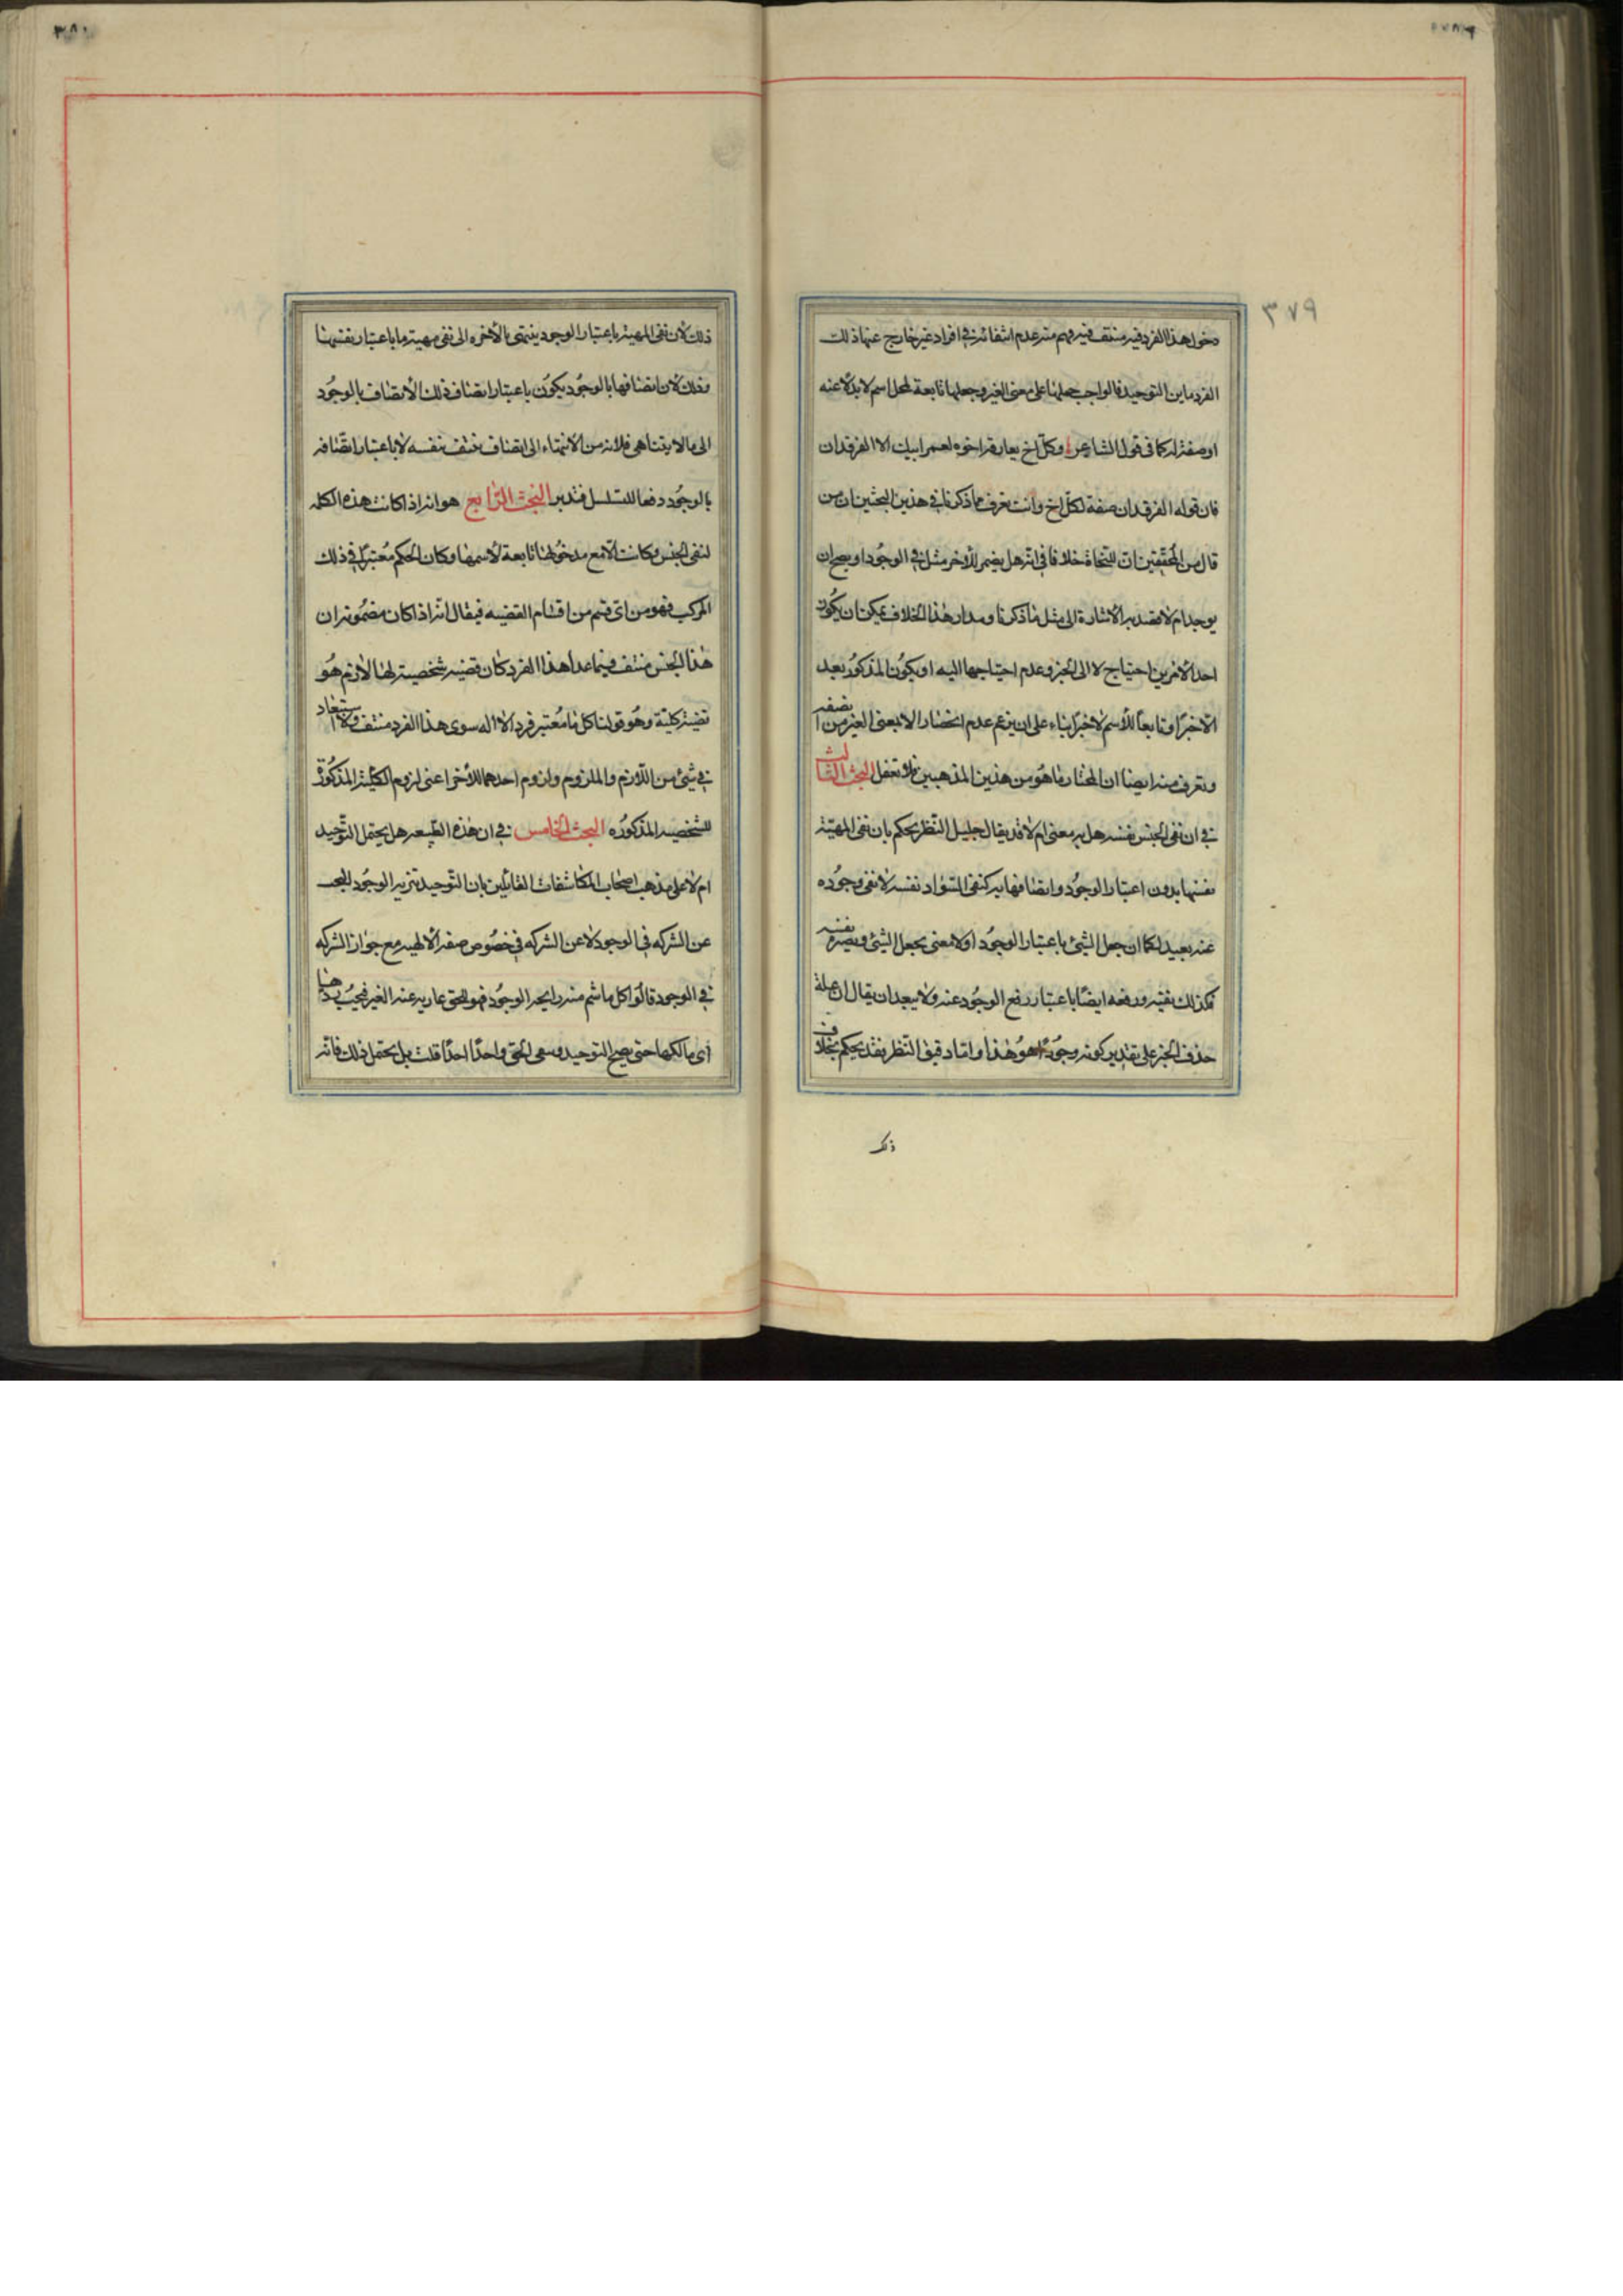 ٣٧٩
دخول هذا الفرد فيه منتف فيه وهم منه عدم انتفائه في افراد غير خارج عنها ذلك
الفرد ماين التوحيد فالواجب جعلها على معنى الغير وجعلها تابعة لمحل اسم لا بدلا عنه
او صفة له كما في قول الشاعر وكل اخ يفارقه اخوه لعمر ابيك الا الفرقدان
فان قوله الفرقدان صفة لكل اخ وانت تعرف ما ذكرنا في هذين البحثين ان من
قال من المحققين ان للنحاة خلافا في انه هل يضمر للا خبر مثل في الوجود او يصح ان
يوجد ام لا فقصد به الاشارة الى مثل ما ذكرنا ومدار هذا الخلاف يمكن ان يكون
احد الامرين احتياج لا الى الخبر وعدم احتياجها اليه او يكون المذكور بعد
الا خبرا وتابعا للاسم لا خبرا بناء على ان يزعم عدم انحضار الا بمعنى الغير من
وتعرف منه ايضا ان المختار ما هو من هذين المذهبين فلا تغفل البحث الثالث
في ان نفى الجنس نفسه هل به معنى ام لا قد يقال جليل النظر يحكم بان نفى المهية
نفسها بدون اعتبار الوجود واتصافها به كنفى السواد نفسه لا نفى وجوده
عنه بعيد فكما ان جعل الشئ باعتبار الوجود اذ لا معنى بجعل الشئ وتصييره نفسه
فكذلك نفيه ورفعه ايضا باعتبار رفع الوجود عنه ولا يبعد ان يقال ان علة
حذف الخبر على تقدير كونه وجودا هو هذا واما دقيق النظر فقد يحكم بخلاف
ذلك
ذلك لان نفى المهية باعتبار الوجود ينتهى بالاخره الى نفى مهية ما باعتبار نفسها
وذلك لان اتصافها بالوجود يكون باعتبار اتصاف ذلك الاتصاف بالوجود
الى ما لا يتناهى فلا بد من الانتهاء الى اتصاف منتف بنفسه لا باعتبار اتصافه
بالوجود دفعا للتسلسل فتدبر البحث الرابع هو انه اذا كانت هذه الكلمه
لنفى الجنس وكانت الا مع مدخولها تابعة لاسمها وكان الحكم معتبرا في ذلك
المركب فهو من اى قسم من اقسام القضيه فيقال انه اذا كان مضمونه ان
هذا الجنس منتف فيما عدا هذا الفرد كان قضيه شخصية لها لازم هو
قضية كلية وهو قولنا كل ما معتبر فرد الاله سوى هذا الفرد منتف ولا استبعاد
في شئ من اللازم والملزوم ولزوم احدهما للاخر اعنى لزوم الكلية المذكورة
للشخصيه المذكوره البحث الخامس في ان هذه الكلمه هل يحتمل التوحيد
ام لا على مذهب اصحاب المكاشفات القائلين بان التوحيد تنزيه الوجود
عن الشركه في الوجود لا عن الشركه في خصوص صفة الالهيه مع جواز الشركه
في الوجود قالوا كل ما شم منه رايحة الوجود فهو للحق عاريه عند الغير فيجب ردها
الى مالكها حتى يصح التوحيد وسعى الحق واحدا احدا قلت بل يحتمل ذلك فانه